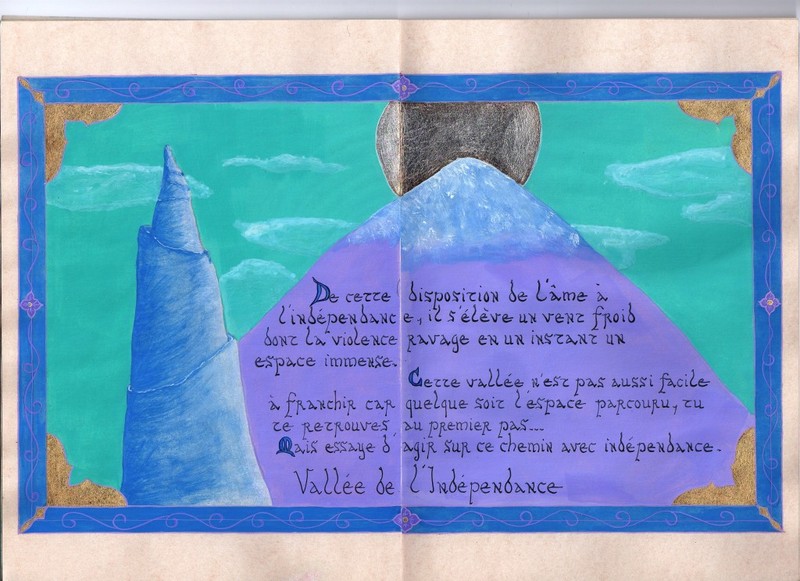 De cette disposition de l'âme à
l'indépendance, il s'élève un vent froid
dont la violence ravage en un instant un
espace immense.
Cette vallée n'est pas aussi facile
à franchir car quelque soit l'espace parcouru, tu
te retrouves au premier pas...
Mais essaye d'agir sur ce chemin avec indépendance.
Vallée de l'Indépendance